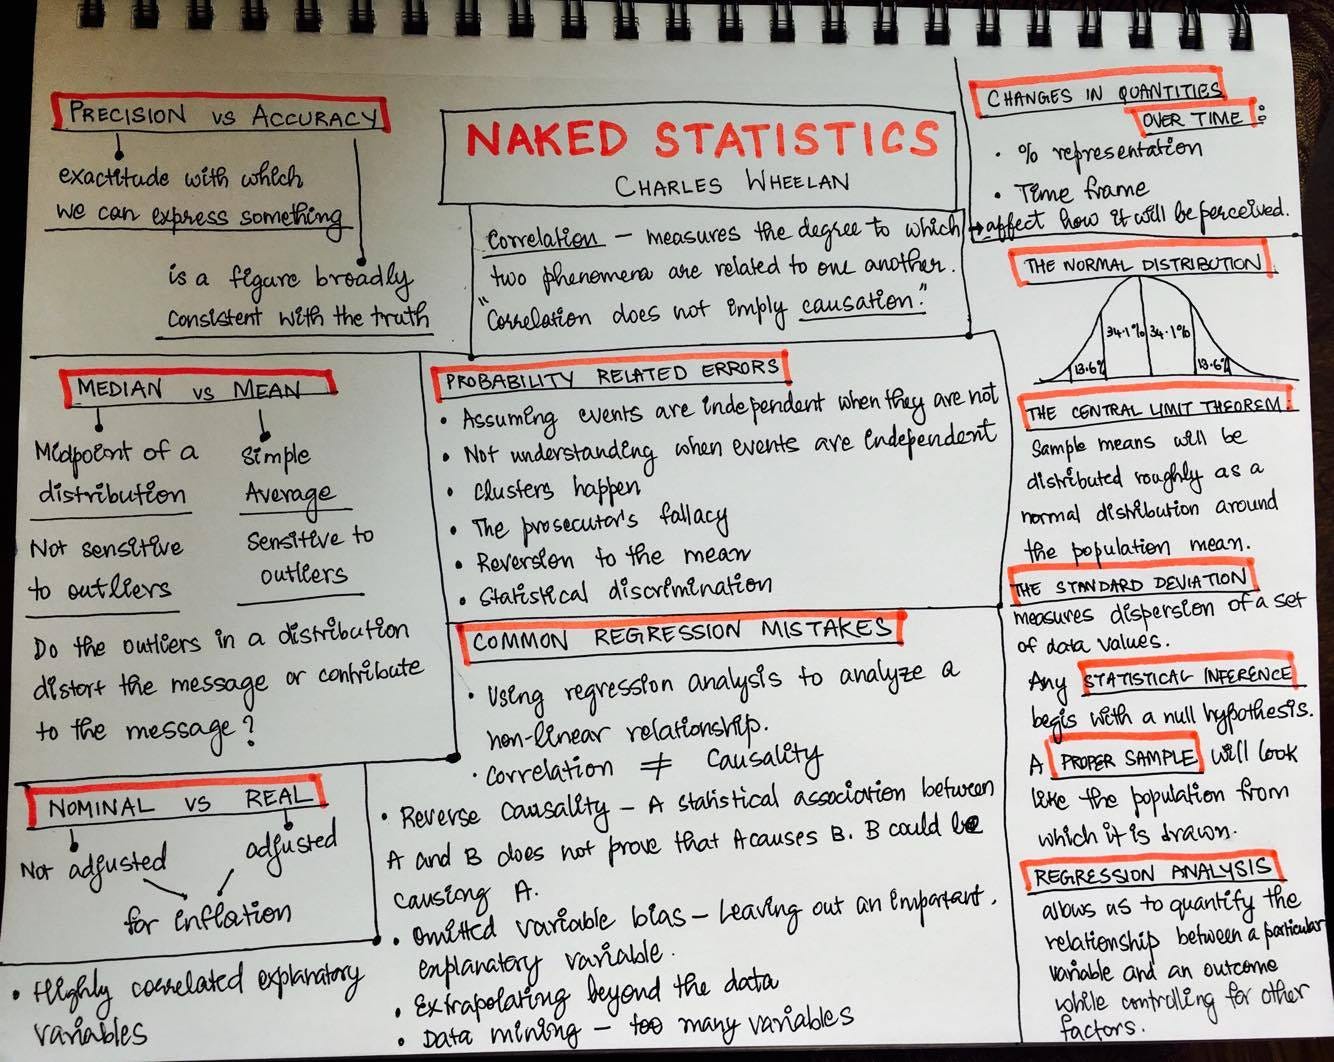 NAKED STATISTICS
CHARLES WHEELAN
PRECISION vs ACCURACY
exactitude with which
we can express something
is a figure broadly
consistent with the truth
Correlation – measures the degree to which
two phenomena are related to one another.
"Correlation does not imply causation."
CHANGES IN QUANTITIES
OVER TIME :
• % representation
• Time frame
→ affect how it will be perceived.
THE NORMAL DISTRIBUTION
34.1% 34.1%
13.6% 13.6%
MEDIAN vs MEAN
Midpoint of a
distribution
Not sensitive
to outliers
Simple
Average
Sensitive to
outliers
Do the outliers in a distribution
distort the message or contribute
to the message?
PROBABILITY RELATED ERRORS
• Assuming events are independent when they are not
• Not understanding when events are independent
• Clusters happen
• The prosecutor's fallacy
• Reversion to the mean
• Statistical discrimination
THE CENTRAL LIMIT THEOREM:
Sample means will be
distributed roughly as a
normal distribution around
the population mean.
THE STANDARD DEVIATION
measures dispersion of a set
of data values.
Any STATISTICAL INFERENCE
begis with a null hypothesis.
A PROPER SAMPLE will look
like the population from
which it is drawn.
REGRESSION ANALYSIS
allows us to quantify the
relationship between a particular
variable and an outcome
while controlling for other
factors.
NOMINAL vs REAL
Not adjusted
adjusted
for inflation
COMMON REGRESSION MISTAKES
• Using regression analysis to analyze a
non-linear relationship.
• Correlation ≠ Causality
• Reverse Causality – A statistical association between
A and B does not prove that A causes B. B could be
causing A.
• Omitted variable bias – Leaving out an important
explanatory variable.
• Extrapolating beyond the data
• Data mining – too many variables
• Highly correlated explanatory
variables